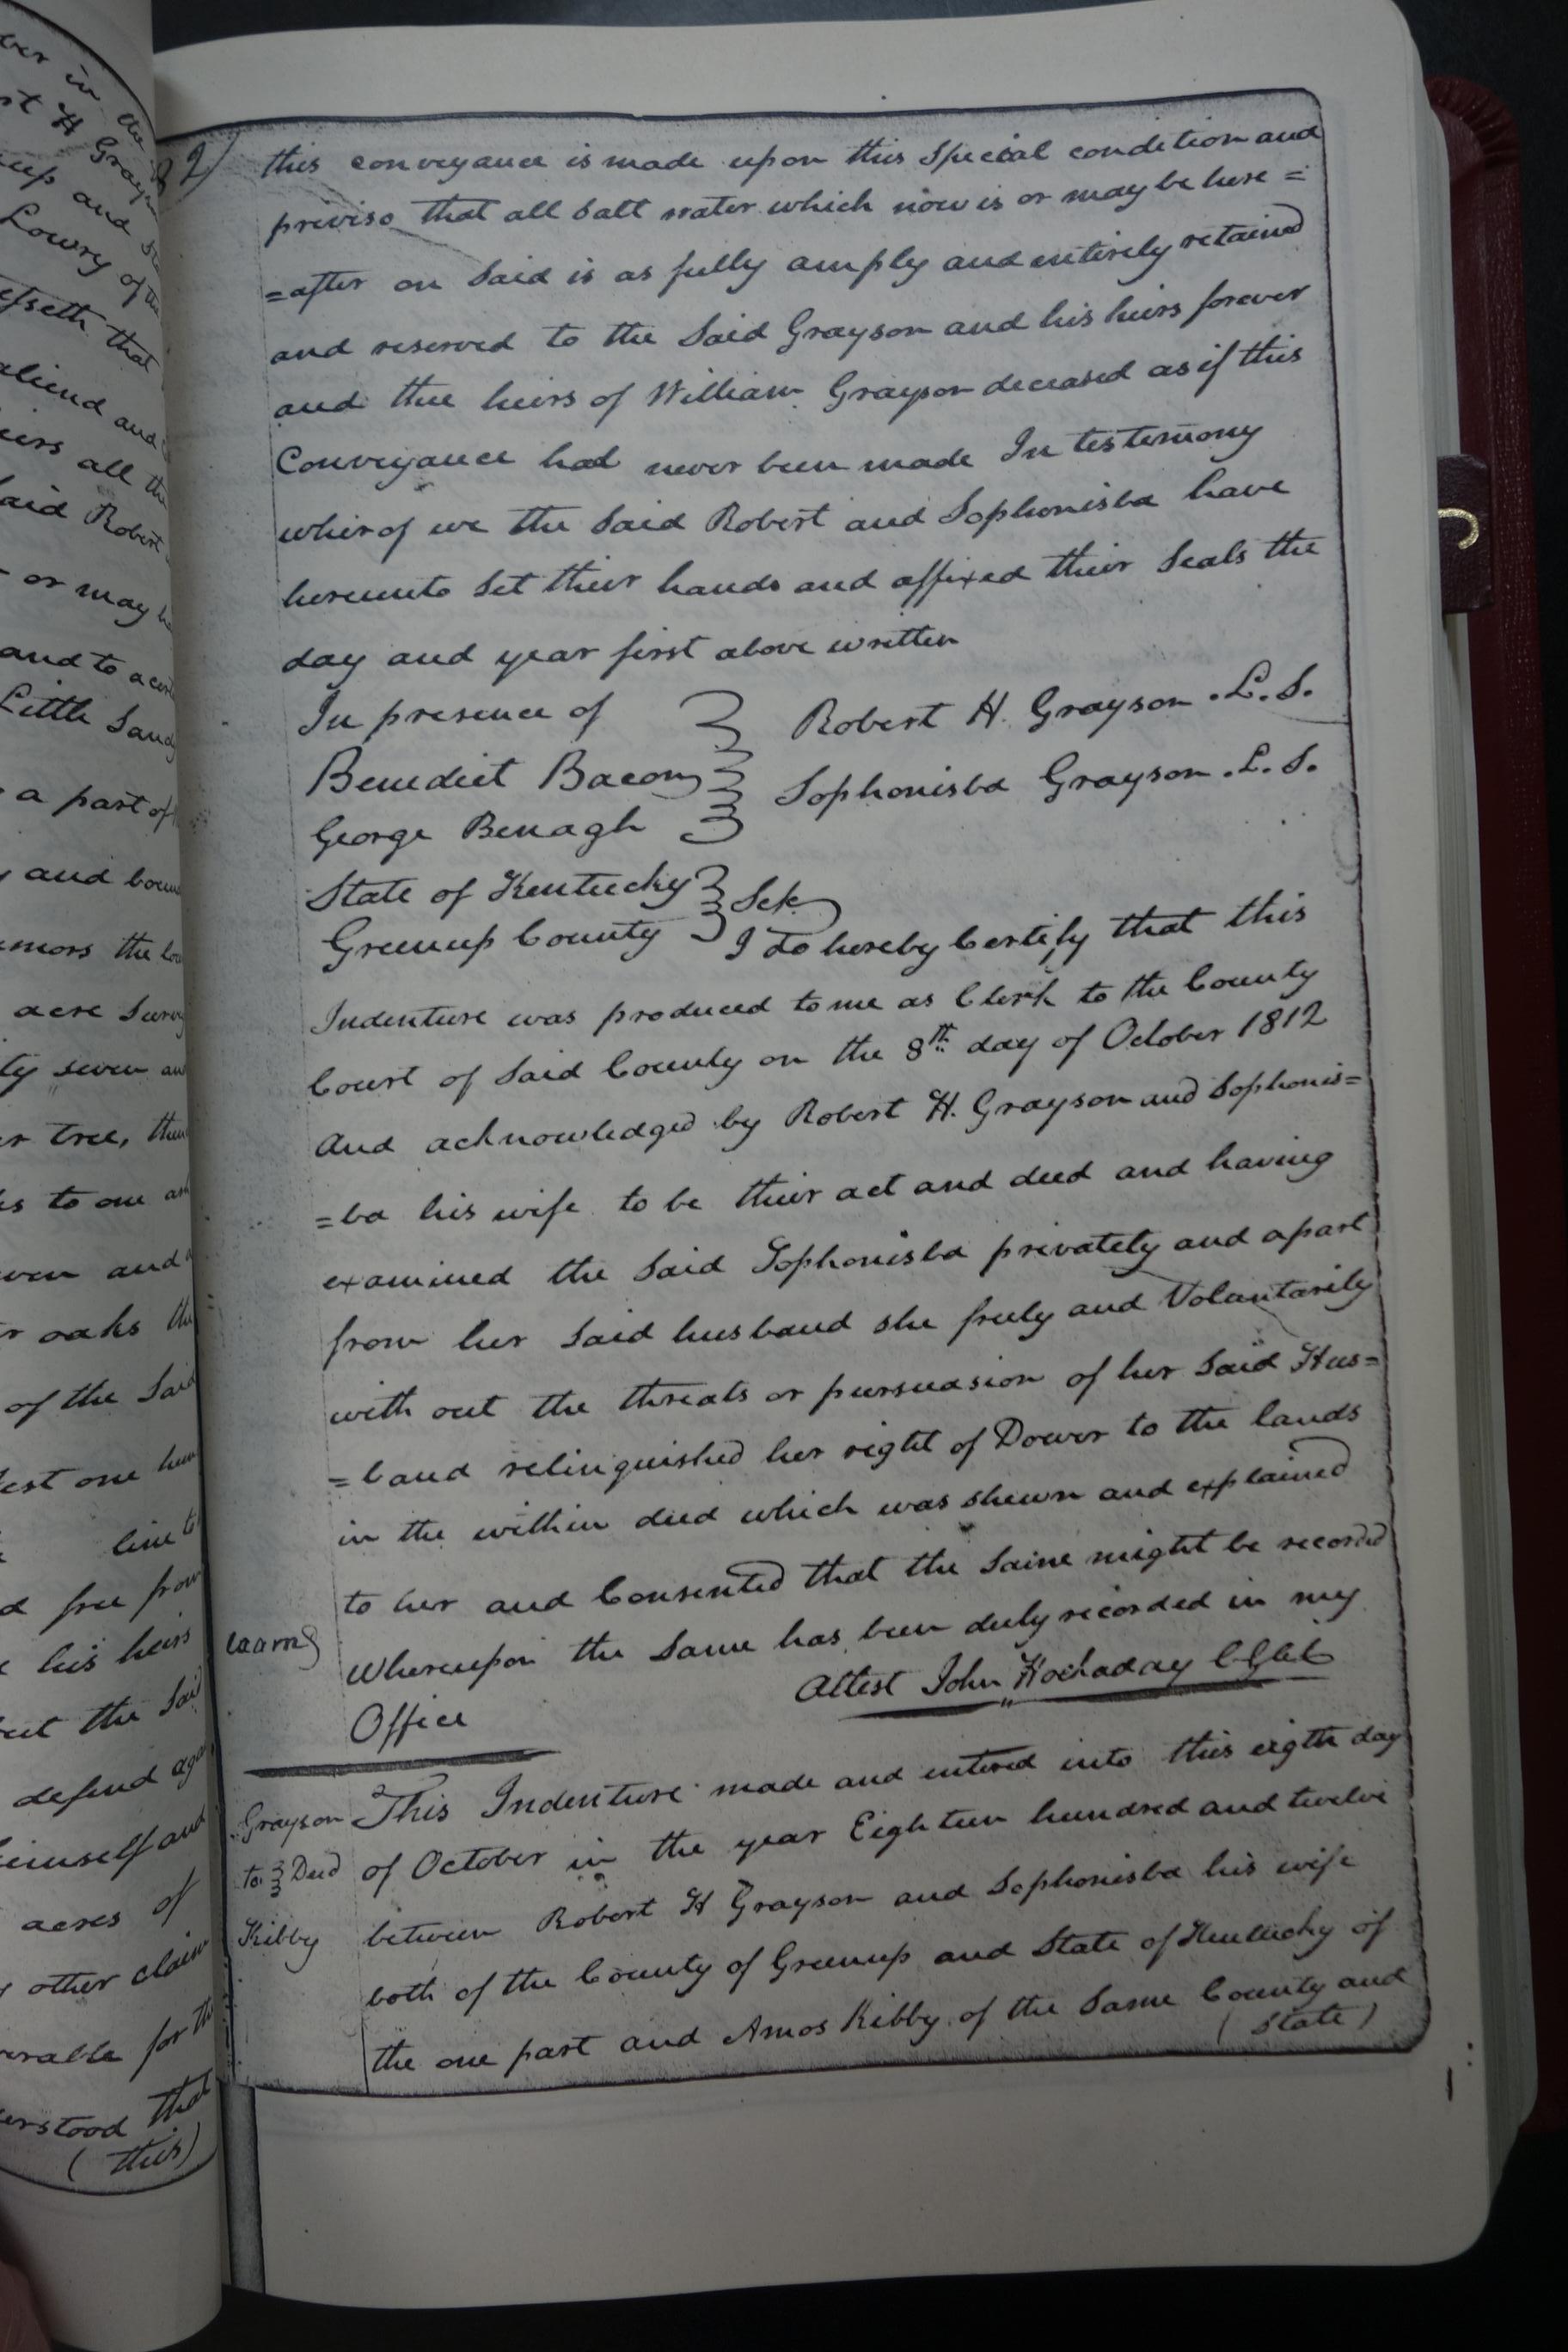 ver in the
st H Grayson
up and
Lowry of the
esseth that
aliend and
eirs all the
said Robert
or may
and to a
Little Sandy
a part of
and boun
mors the
acre Surv
ty seven an
r tree, then
s to one an
ven and
r oaks the
of the Said
est one hun
line to
d free from
his heirs
but the Said
defend aga
himself and
acres of
other claim
erable for th
erstood that
( this)
82)
this conveyance is made upon this Special condition and
proviso that all Salt water which now is or may be here =
=after on Said is as fully amply and entirely retained
and reserved to the Said Grayson and his heirs forever
and the heirs of William Grayson deceased as if this
Conveyance had never been made In testemony
wherof we the Said Robert and Sophonisba have
hereunto Set their hands and affixed their Seals the
day and year first above written
In presence of
Robert H. Grayson .L.S.
Benedict Bacon
Sophonisba Grayson .L.S.
George Benagh
State of Kentucky
Greenup County
Sct
I do hereby Certify that this
Indenture was produced to me as Clerk to the County
Court of Said County on the 8th day of October 1812
And acknowledged by Robert H. Grayson and Sophonis=
=ba his wife to be their act and deed and having
examined the Said Sophonisba privately and apart
from her Said husband she freely and Voluntarily
with out the threats or pursuasion of her Said Hus=
=band relinquished her right of Dower to the lands
in the within deed which was shewn and explained
to her and Consented that the Same might be recorded
Whereupon the Same has been duly recorded in my
Office
Attest John Hockaday
Grayson
to Deed
Kibby
This Indenture made and entered into this eigth day
of October in the year Eighteen hundred and twelve
between Robert H Grayson and Sophonisba his wife
both of the County of Greenup and State of Kentucky of
the one part and Amos Kibby of the Same County and
( State )